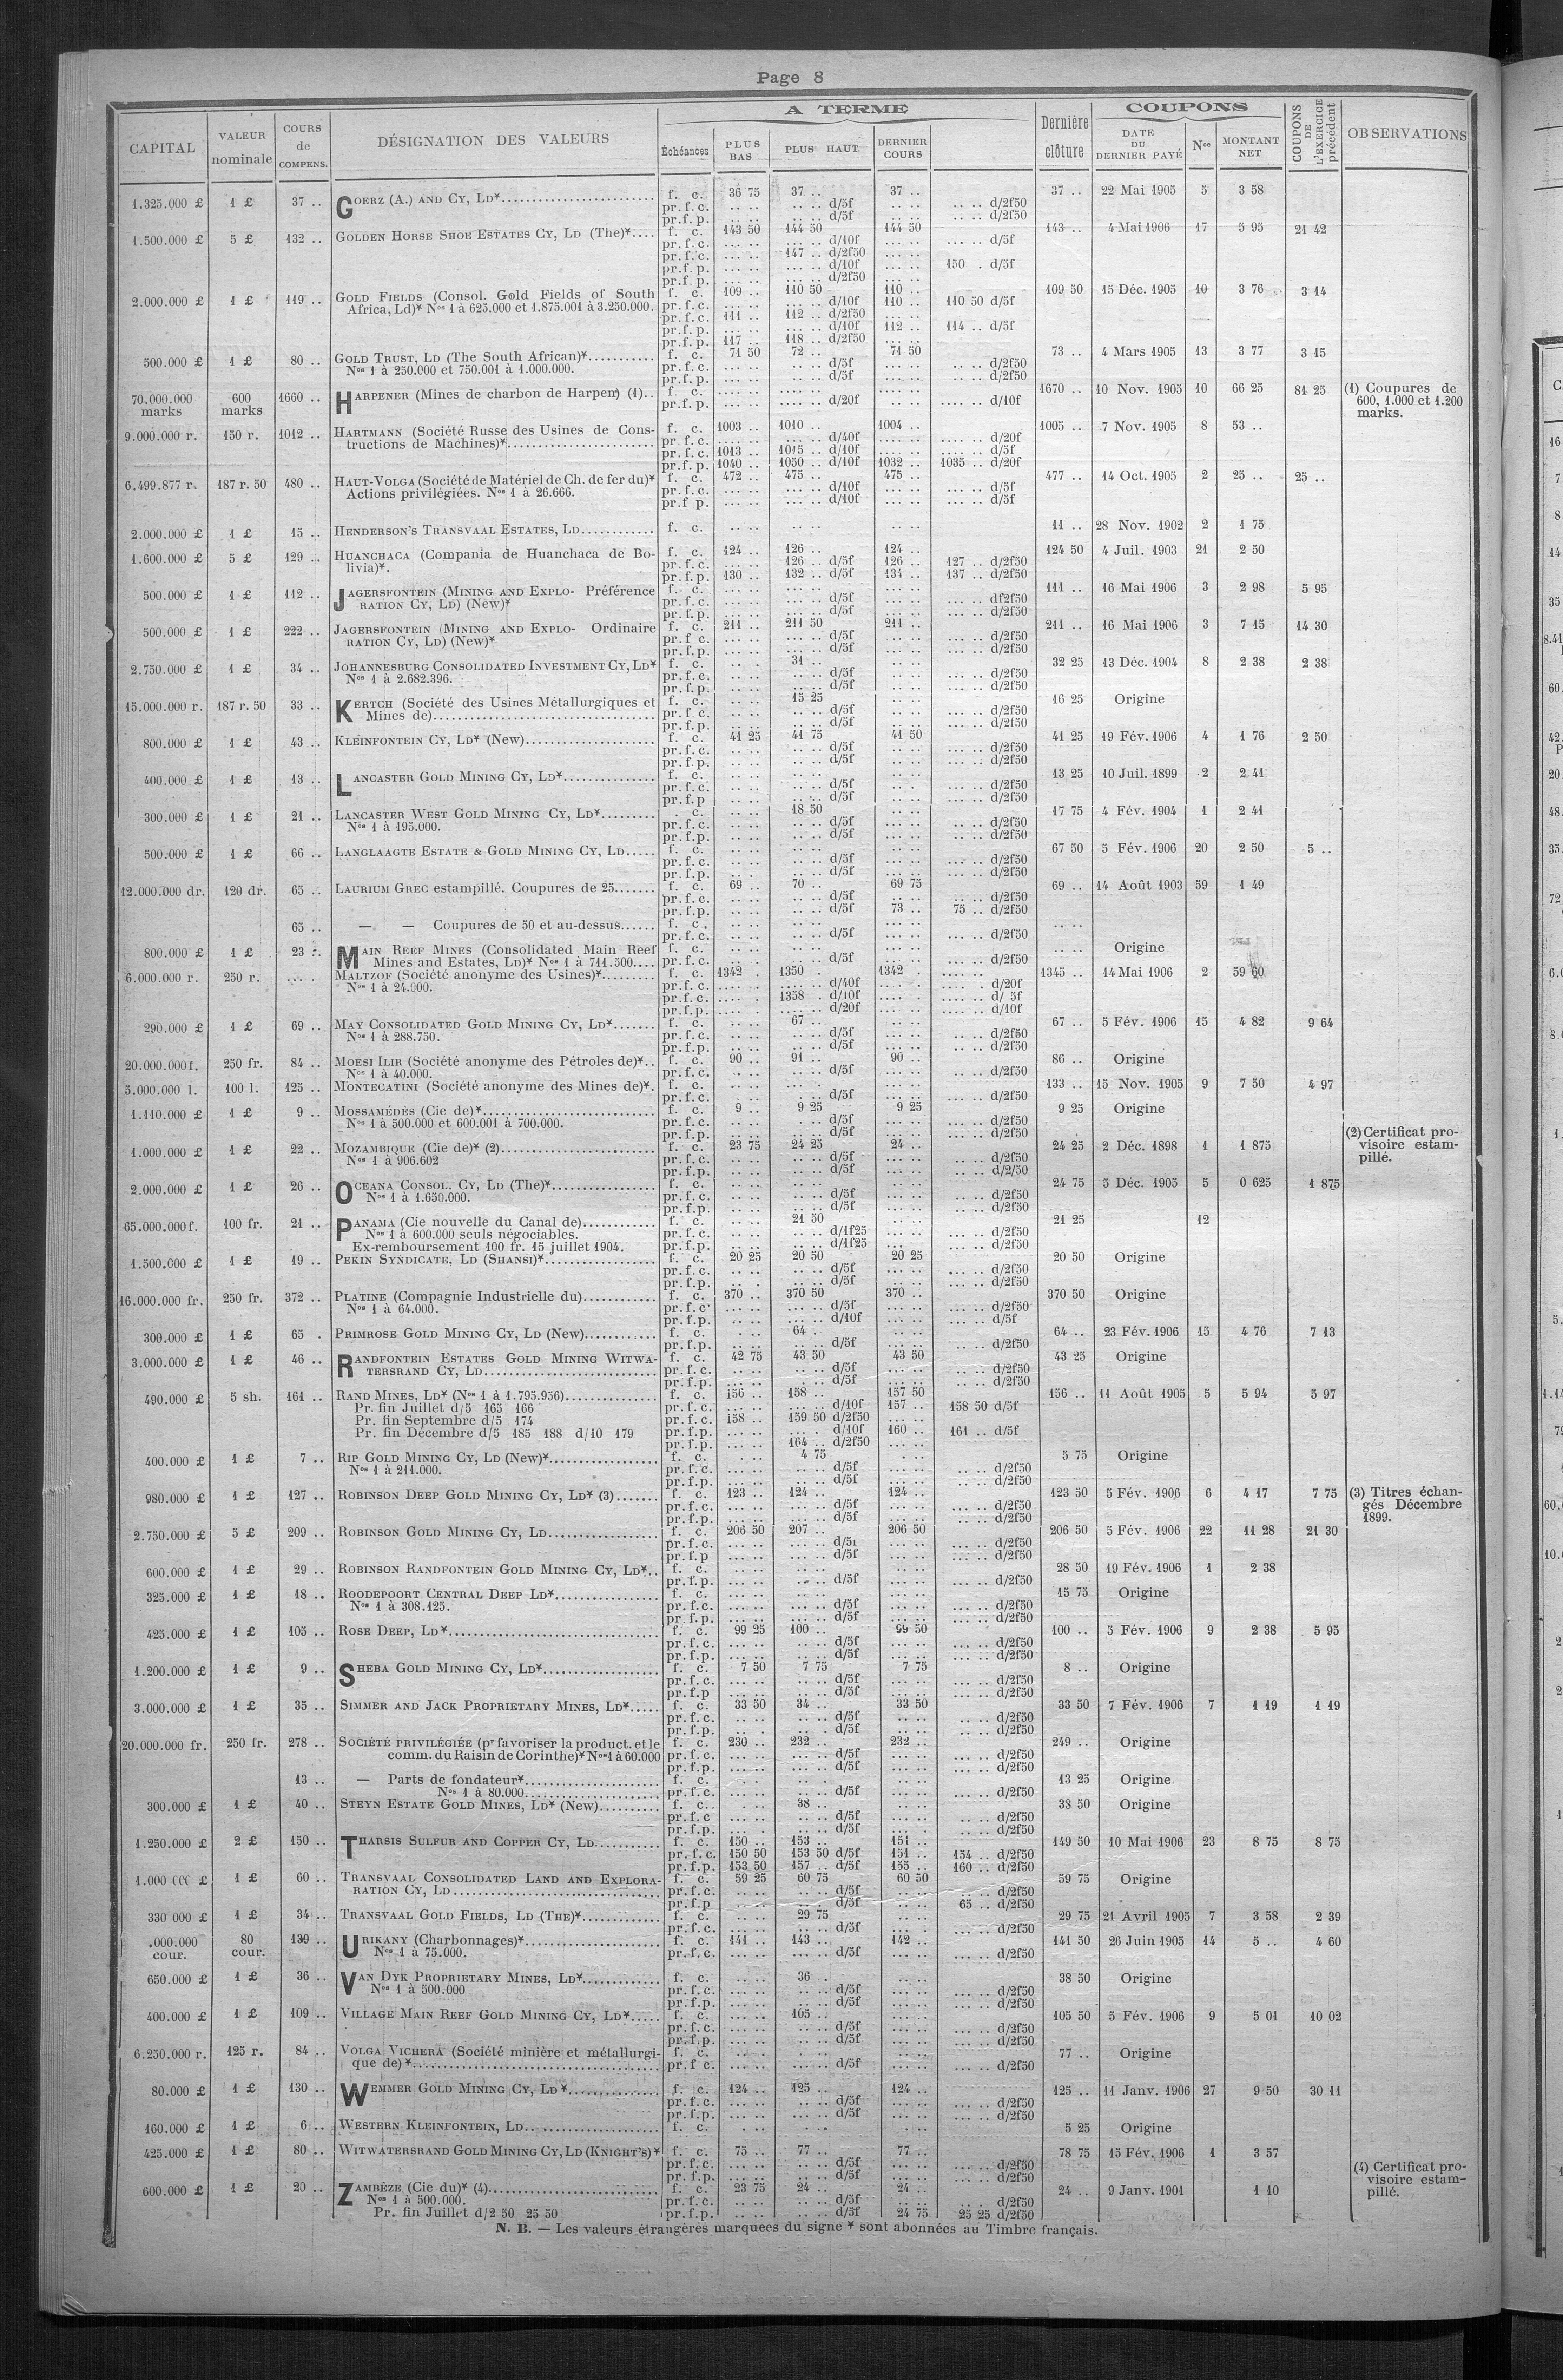 Page 8
CAPITAL VALEUR nominale COURS de COMPENS. DÉSIGNATION DES VALEURS A TERME Échéances PLUS BAS PLUS HAUT DERNIER COURS Dernière clôture COUPONS DATE DU DERNIER PAYÉ Nos MONTANT NET COUPONS DE L'EXERCICE précédent OBSERVATIONS
1.325.000 £ 1 £ 37 .. GOERZ (A.) AND CY, LD* f. c. 36 75 37 .. 37 .. 37 .. 22 Mai 1905 5 3 58
pr. f. c. .. .. .. .. d/5f .. .. .. .. d/2f50
pr. f. p. .. .. .. .. d/5f .. .. .. .. d/2f50
1.500.000 £ 5 £ 132 .. GOLDEN HORSE SHOE ESTATES CY, LD (The)* f. c. 143 50 144 50 144 50 143 .. 4 Mai 1906 17 5 95 21 42
pr. f. c. ... .. ... .. d/10f ... .. ... .. d/5f
pr. f. c. ... .. 147 .. d/2f50 ... ..
pr. f. p. ... .. ... .. d/10f ... .. 150 . d/5f
pr. f. p. ... .. ... .. d/2f50 ... ..
2.000.000 £ 1 £ 119 .. GOLD FIELDS (Consol. Gold Fields of South f. c. 109 .. 110 50 110 .. 109 50 15 Déc. 1905 10 3 76 3 14
Africa, Ld)* Nos 1 à 625.000 et 1.875.001 à 3.250.000. pr. f. c. ... .. ... .. d/10f 110 .. 110 50 d/5f
pr. f. c. 111 .. 112 .. d/2f50 ... ..
pr. f. p. ... .. ... .. d/10f 112 .. 114 .. d/5f
pr. f. p. 117 .. 118 .. d/2f50 ... ..
500.000 £ 1 £ 80 .. GOLD TRUST, LD (The South African)* f. c. 71 50 72 .. 71 50 73 .. 4 Mars 1905 13 3 77 3 15
Nos 1 à 250.000 et 750.001 à 1.000.000. pr. f. c. ... .. .. .. d/5f .. .. d/2f50
pr. f. p. ... .. .. .. d/5f .. .. d/2f50
70.000.000 marks 600 marks 1660 .. HARPENER (Mines de charbon de Harpen) (1).. f. c. 1670 .. 10 Nov. 1905 10 66 25 81 25 (1) Coupures de
pr. f. p. .... .. d/20f .... .. d/10f 600, 1.000 et 1.200
marks.
9.000.000 r. 150 r. 1012 .. HARTMANN (Société Russe des Usines de Cons- f. c. 1003 .. 1010 .. 1004 .. 1005 .. 7 Nov. 1905 8 53 ..
tructions de Machines)* pr. f. c. .... .. .... .. d/40f .... .. d/20f
pr. f. c. 1013 .. 1015 .. d/10f .... .. d/5f
pr. f. p. 1040 .. 1050 .. d/10f 1032 .. 1035 .. d/20f
6.499.877 r. 187 r. 50 480 .. HAUT-VOLGA (Société de Matériel de Ch. de fer du)* f. c. 472 .. 475 .. 475 .. 477 .. 14 Oct. 1905 2 25 .. 25 ..
Actions privilégiées. Nos 1 à 26.666. pr. f. c. ... .. ... .. d/10f ... .. d/5f
pr. f. p. ... .. ... .. d/10f ... .. d/5f
2.000.000 £ 1 £ 15 .. HENDERSON'S TRANSVAAL ESTATES, LD f. c. .. .. .. .. .. .. 11 .. 28 Nov. 1902 2 1 75
1.600.000 £ 5 £ 129 .. HUANCHACA (Compania de Huanchaca de Bo- f. c. 124 .. 126 .. 124 .. 124 50 4 Juil. 1903 21 2 50
livia)*. pr. f. c. ... .. 126 .. d/5f 126 .. 127 .. d/2f50
pr. f. p. 130 .. 132 .. d/5f 134 .. 137 .. d/2f50
500.000 £ 1 £ 112 .. JAGERSFONTEIN (MINING AND EXPLO- Préférence f. c. 111 .. 16 Mai 1906 3 2 98 5 95
RATION CY, LD) (New)* pr. f. c. ... .. ... .. d/5f ... .. df2f50
pr. f. p. ... .. ... .. d/5f ... .. d/2f50
500.000 £ 1 £ 222 .. JAGERSFONTEIN (MINING AND EXPLO- Ordinaire f. c. 211 .. 211 50 211 .. 211 .. 16 Mai 1906 3 7 15 14 30
RATION CY, LD) (New)* pr. f. c. ... .. ... .. d/5f ... .. d/2f50
pr. f. p. ... .. ... .. d/5f ... .. d/2f50
2.750.000 £ 1 £ 34 .. JOHANNESBURG CONSOLIDATED INVESTMENT CY, LD* f. c. .. . 31 .. .. .. 32 25 13 Déc. 1904 8 2 38 2 38
Nos 1 à 2.682.396. pr. f. c. .. .. .. .. d/5f ... .. d/2f50
pr. f. p. .. .. .. .. d/5f ... .. d/2f50
15.000.000 r. 187 r. 50 33 .. KERTCH (Société des Usines Métallurgiques et f. c. .. .. 15 25 .. .. 16 25 Origine
Mines de) pr. f. c. .. .. .. .. d/5f ... .. d/2f50
pr. f. p. .. .. .. .. d/5f ... .. d/2f50
800.000 £ 1 £ 43 .. KLEINFONTEIN CY, LD* (New) f. c. 41 25 41 75 41 50 41 25 19 Fév. 1906 4 1 76 2 50
pr. f. c. .. .. .. .. d/5f ... .. d/2f50
pr. f. p. .. .. .. .. d/5f ... .. d/2f50
400.000 £ 1 £ 13 .. LANCASTER GOLD MINING CY, LD* f. c. 13 25 10 Juil. 1899 2 2 41
pr. f. c. .. .. .. .. d/5f ... .. d/2f50
pr. f. p .. .. .. .. d/5f ... .. d/2f50
300.000 £ 1 £ 21 .. LANCASTER WEST GOLD MINING CY, LD* . c. .. .. 18 50 .. .. 17 75 4 Fév. 1904 1 2 41
Nos 1 à 195.000. pr. f. c. .. .. .. .. d/5f .. .. d/2f50
pr. f. p. .. .. .. .. d/5f .. .. d/2f50
500.000 £ 1 £ 66 .. LANGLAAGTE ESTATE & GOLD MINING CY, LD f. c. 67 50 5 Fév. 1906 20 2 50 5 ..
pr. f. c. .. .. .. .. d/5f ... .. d/2f50
pr. f. p. .. .. .. .. d/5f .. .. d/2f50
12.000.000 dr. 120 dr. 65 .. LAURIUM GREC estampillé. Coupures de 25 f. c. 69 .. 70 .. 69 75 69 .. 14 Août 1903 59 1 49
pr. f. c. .. .. .. .. d/5f .. .. d/2f50
pr. f. p. .. .. .. .. d/5f 73 .. 75 .. d/2f50
65 .. — — Coupures de 50 et au-dessus f. c. .. .. .. .. .. ..
pr. f. c. .. .. .. .. d/5f .. .. d/2f50
800.000 £ 1 £ 23 .. MAIN REEF MINES (Consolidated Main Reef f. c. .. .. Origine
Mines and Estates, Ld)* Nos 1 à 711.500 pr. f. c. .. .. d/5f ... .. d/2f50
6.000.000 r. 250 r. .... . MALTZOF (Société anonyme des Usines)* f. c. 1342 . 1350 . 1342 . 1345 .. 14 Mai 1906 2 59 60
Nos 1 à 24.000. pr. f. c. .... . .... .. d/40f .... .. d/20f
pr. f. c. .... . 1358 . d/10f .... .. d/ 5f
pr. f. p. .... . .... .. d/20f .... .. d/10f
290.000 £ 1 £ 69 .. MAY CONSOLIDATED GOLD MINING CY, LD* f. c. .. .. 67 .. .. .. 67 .. 5 Fév. 1906 15 4 82 9 64
Nos 1 à 288.750. pr. f. c. .. .. .. .. d/5f ... .. d/2f50
pr. f. p. .. .. .. .. d/5f ... .. d/2f50
20.000.000 f. 250 fr. 84 .. MOESI ILIR (Société anonyme des Pétroles de)* f. c. 90 .. 91 .. 90 .. 86 .. Origine
Nos 1 à 40.000. pr. f. c. .. .. .. .. d/5f .. .. d/2f50
5.000.000 l. 100 l. 125 .. MONTECATINI (Société anonyme des Mines de)*. f. c. 133 .. 15 Nov. 1905 9 7 50 4 97
pr. f. c. ... .. . .. d/5f ... .. d/2f50
1.110.000 £ 1 £ 9 .. MOSSAMÉDÈS (Cie de)* f. c. 9 .. 9 25 9 25 9 25 Origine
Nos 1 à 500.000 et 600.001 à 700.000. pr. f. c. .. .. . .. d/5f .. .. d/2f50
pr. f. p. .. .. .. .. d/5f .. .. d/2f50
1.000.000 £ 1 £ 22 .. MOZAMBIQUE (Cie de)* (2) f. c. 23 75 24 25 24 .. 24 25 2 Déc. 1898 1 1 875 (2) Certificat pro-
Nos 1 à 906.602 pr. f. c. .. .. .. .. d/5f .. .. d/2f50 visoire estam-
pr. f. p. .. .. .. .. d/5f .. .. d/2/50 pillé.
2.000.000 £ 1 £ 26 .. OCEANA CONSOL. CY, LD (The)* f. c. 24 75 5 Déc. 1905 5 0 625 1 875
Nos 1 à 1.650.000. pr. f. c. .. .. .. .. d/5f .. .. d/2f50
pr. f. p. .. .. .. .. d/5f .. .. d/2f50
65.000.000 f. 100 fr. 21 .. PANAMA (Cie nouvelle du Canal de) f. c. .. .. 21 50 .. .. 21 25 12
Nos 1 à 600.000 seuls négociables. pr. f. c. .. .. .. .. d/1f25 ... .. d/2f50
Ex-remboursement 100 fr. 15 juillet 1904. pr. f. p. .. .. .. .. d/1f25 ... .. d/2f50
1.500.000 £ 1 £ 19 .. PEKIN SYNDICATE, LD (SHANSI)* f. c. 20 25 20 50 20 25 20 50 Origine
pr. f. c. .. .. .. .. d/5f ... .. d/2f50
pr. f. p. .. . .. .. d/5f ... .. d/2f50
16.000.000 fr. 250 fr. 372 .. PLATINE (Compagnie Industrielle du) f. c. 370 .. 370 50 370 .. 370 50 Origine
Nos 1 à 64.000. pr. f. c. ... .. ... .. d/5f ... .. d/2f50
pr. f. p. ... .. ... .. d/10f ... .. d/5f
300.000 £ 1 £ 65 . PRIMROSE GOLD MINING CY, LD (New) f. c. . .. 64 . .. .. 64 .. 23 Fév. 1906 15 4 76 7 13
pr. f. p. .. .. .. .. d/5f ... .. d/2f50
3.000.000 £ 1 £ 46 .. RANDFONTEIN ESTATES GOLD MINING WITWA- f. c. 42 75 43 50 43 50 43 25 Origine
TERSRAND CY, LD pr. f. c. .. .. .. .. d/5f .. .. d/2f50
pr. f. p. .. .. .. .. d/5f .. .. d/2f50
490.000 £ 5 sh. 161 .. RAND MINES, LD* (Nos 1 à 1.795.956) f. c. 156 .. 158 .. 157 50 156 .. 11 Août 1905 5 5 94 5 97
Pr. fin Juillet d/5 165 166 pr. f. c. ... .. ... .. d/10f 157 .. 158 50 d/5f
Pr. fin Septembre d/5 174 pr. f. c. 158 .. 159 50 d/2f50 ... ..
Pr. fin Décembre d/5 185 188 d/10 179 pr. f. p. ... .. ... . d/10f 160 .. 161 .. d/5f
pr. f. p. ... .. 164 .. d/2f50 ... ..
400.000 £ 1 £ 7 .. RIP GOLD MINING CY, LD (New)* f. c. . .. 4 75 . .. 5 75 Origine
Nos 1 à 211.000. pr. f. c. ... .. .. .. d/5f .. .. d/2f50
pr. f. p. ... .. .. .. d/5f .. .. d/2f50
980.000 £ 1 £ 127 .. ROBINSON DEEP GOLD MINING CY, LD* (3) f. c. 123 .. 124 .. 124 .. 123 50 5 Fév. 1906 6 4 17 7 75 (3) Titres échan-
pr. f. c. ... .. .. .. d/5f ... .. d/2f50 gés Décembre
pr. f. p. ... .. .. .. d/5f ... .. d/2f50 1899.
2.750.000 £ 5 £ 209 .. ROBINSON GOLD MINING CY, LD f. c. 206 50 207 .. 206 50 206 50 5 Fév. 1906 22 11 28 21 30
pr. f. c. ... .. .. .. d/5f ... .. d/2f50
pr. f. p ... .. .. .. d/5f ... .. d/2f50
600.000 £ 1 £ 29 .. ROBINSON RANDFONTEIN GOLD MINING CY, LD*.. f. c. 28 50 19 Fév. 1906 1 2 38
pr. f. p. ... .. .. .. d/5f ... .. d/2f50
325.000 £ 1 £ 18 .. ROODEPOORT CENTRAL DEEP LD* f. c. 15 75 Origine
Nos 1 à 308.125. pr. f. c. ... .. ... .. d/5f ... .. d/2f50
pr. f. p. ... .. ... .. d/5f ... .. d/2f50
425.000 £ 1 £ 105 .. ROSE DEEP, LD* f. c. 99 25 100 .. 99 50 100 .. 5 Fév. 1906 9 2 38 5 95
pr. f. c. ... .. ... .. d/5f ... .. d/2f50
pr. f. p. ... .. ... .. d/5f ... .. d/2f50
1.200.000 £ 1 £ 9 .. SHEBA GOLD MINING CY, LD* f. c. 7 50 7 75 7 75 8 .. Origine
pr. f. c. ... .. .. .. d/5f ... .. d/2f50
pr. f. p ... .. .. .. d/5f ... .. d/2f50
3.000.000 £ 1 £ 35 .. SIMMER AND JACK PROPRIETARY MINES, LD* f. c. 33 50 34 .. 33 50 33 50 7 Fév. 1906 7 1 19 1 19
pr. f. c. .. .. .. .. d/5f .. .. d/2f50
pr. f. p. .. . .. . d/5f .. .. d/2f50
20.000.000 fr. 250 fr. 278 .. SOCIÉTÉ PRIVILÉGIÉE (pr favoriser la product. et le f. c. 230 .. 232 .. 232 .. 249 .. Origine
comm. du Raisin de Corinthe)* Nos 1 à 60.000 pr. f. c. ... .. ... .. d/5f ... .. d/2f50
pr. f. p. ... .. ... .. d/5f ... .. d/2f50
13 .. — Parts de fondateur* f. c. 13 25 Origine
Nos 1 à 80.000 pr. f. c. .. .. .. .. d/5f ... .. d/2f50
300.000 £ 1 £ 40 .. STEYN ESTATE GOLD MINES, LD* (New) f. c. . .. 38 .. .. .. 38 50 Origine
pr. f. c .. .. .. .. d/5f ... .. d/2f50
pr. f. p. ... . .. .. d/5f .. .. d/2f50
1.250.000 £ 2 £ 150 .. THARSIS SULFUR AND COPPER CY, LD f. c. 150 .. 153 .. 151 .. 149 50 10 Mai 1906 23 8 75 8 75
pr. f. c. 150 50 153 50 d/5f 151 .. 154 .. d/2f50
pr. f. p. 153 50 157 .. d/5f 155 .. 160 .. d/2f50
1.000 000 £ 1 £ 60 .. TRANSVAAL CONSOLIDATED LAND AND EXPLORA- f. c. 59 25 60 75 60 50 59 75 Origine
RATION CY, LD pr. f. c. .. .. .. .. d/5f .. .. d/2f50
pr. f. p .. .. .. .. d/5f 65 .. d/2f50
330 000 £ 1 £ 34 .. TRANSVAAL GOLD FIELDS, LD (THE)* f. c. .. .. 29 75 .. .. 29 75 21 Avril 1905 7 3 58 2 39
pr. f. c. ... .. .. .. d/5f ... .. d/2f50
.000.000 cour. 80 cour. 139 .. URIKANY (Charbonnages)* f. c. 141 .. 143 .. 142 .. 141 50 26 Juin 1905 14 5 .. 4 60
Nos 1 à 75.000. pr. f. c. ... .. ... .. d/5f ... .. d/2f50
650.000 £ 1 £ 36 .. VAN DYK PROPRIETARY MINES, LD* f. c. .. .. 36 . .. .. 38 50 Origine
Nos 1 à 500.000 pr. f. c. ... .. .. .. d/5f ... .. d/2f50
pr. f. p. ... .. .. .. d/5f ... .. d/2f50
400.000 £ 1 £ 109 .. VILLAGE MAIN REEF GOLD MINING CY, LD* f. c. ... .. 105 .. ... .. 105 50 5 Fév. 1906 9 5 01 10 02
pr. f. c. ... .. .. .. d/5f ... .. d/2f50
pr. f. p. ... .. .. .. d/5f ... .. d/2f50
6.250.000 r. 125 r. 84 .. VOLGA VICHERA (Société minière et métallurgi- f. c. 77 .. Origine
que de)* pr. f. c. ... .. ... .. d/5f ... .. d/2f50
80.000 £ 1 £ 130 .. WEMMER GOLD MINING CY, LD* f. c. 124 .. 125 .. 124 .. 125 .. 11 Janv. 1906 27 9 50 30 11
pr. f. c. ... .. ... .. d/5f ... .. d/2f50
pr. f. p. ... .. ... .. d/5f ... .. d/2f50
160.000 £ 1 £ 6 .. WESTERN KLEINFONTEIN, LD f. c. 5 25 Origine
425.000 £ 1 £ 80 .. WITWATERSRAND GOLD MINING CY, LD (KNIGHT'S)* f. c. 75 .. 77 .. 77 .. 78 75 15 Fév. 1906 1 3 57
pr. f. c. ... .. .. .. d/5f ... .. d/2f50
pr. f. p. ... .. .. .. d/5f ... .. d/2f50
600.000 £ 1 £ 20 .. ZAMBÈZE (Cie du)* (4) f. c. 23 75 24 .. 24 .. 24 .. 9 Janv. 1901 1 10 (4) Certificat pro-
Nos 1 à 500.000. pr. f. c. .. .. .. .. d/5f .. . d/2f50 visoire estam-
Pr. fin Juillet d/2 50 25 50 pr. f. p. .. .. .. .. d/5f 24 75 25 25 d/2f50 pillé.
N. B. — Les valeurs étrangères marquées du signe * sont abonnées au Timbre français.